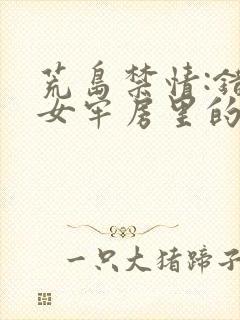 荒岛禁情:错
女牢房里的
一只大猪蹄子